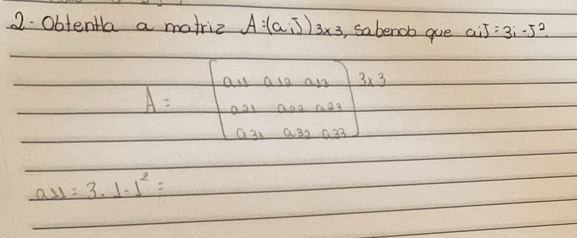 2. Obtenha a matriz A=(aij)3x3, sabendo que aij=3i-j².
a11 a12 a13 3x3
A = a21 a22 a23
a31 a32 a33
a11 = 3.1-1² =